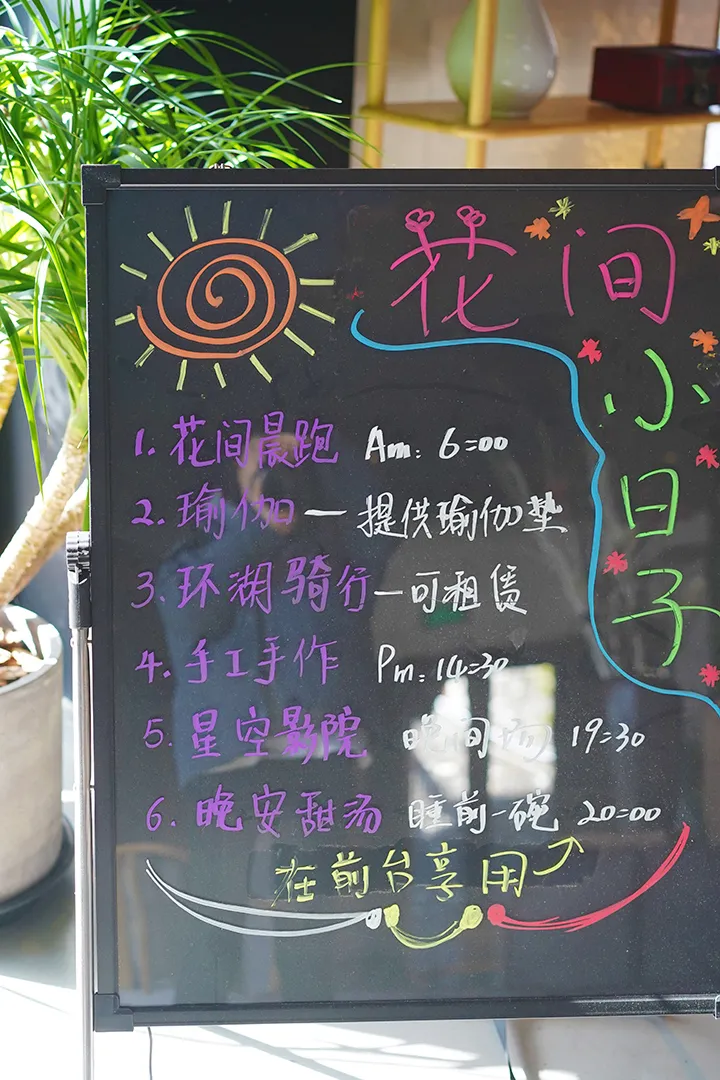 花间
小日子
1. 花间晨跑 Am: 6:00
2. 瑜伽 — 提供瑜伽垫
3. 环湖骑行 — 可租赁
4. 手工手作 Pm: 14:30
5. 星空影院 晚间场 19:30
6. 晚安甜汤 睡前一碗 20:00
在前台享用